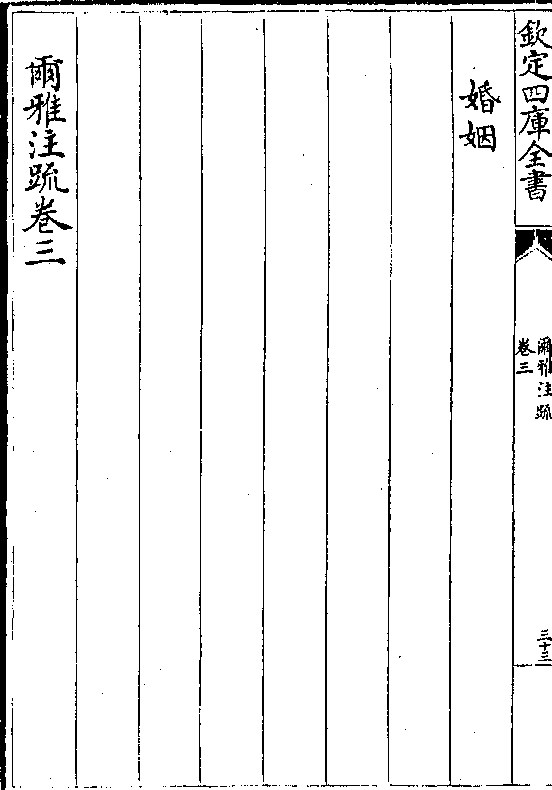 欽定四庫全書
爾雅注疏
卷三
三十三
婚姻
爾雅注疏卷三